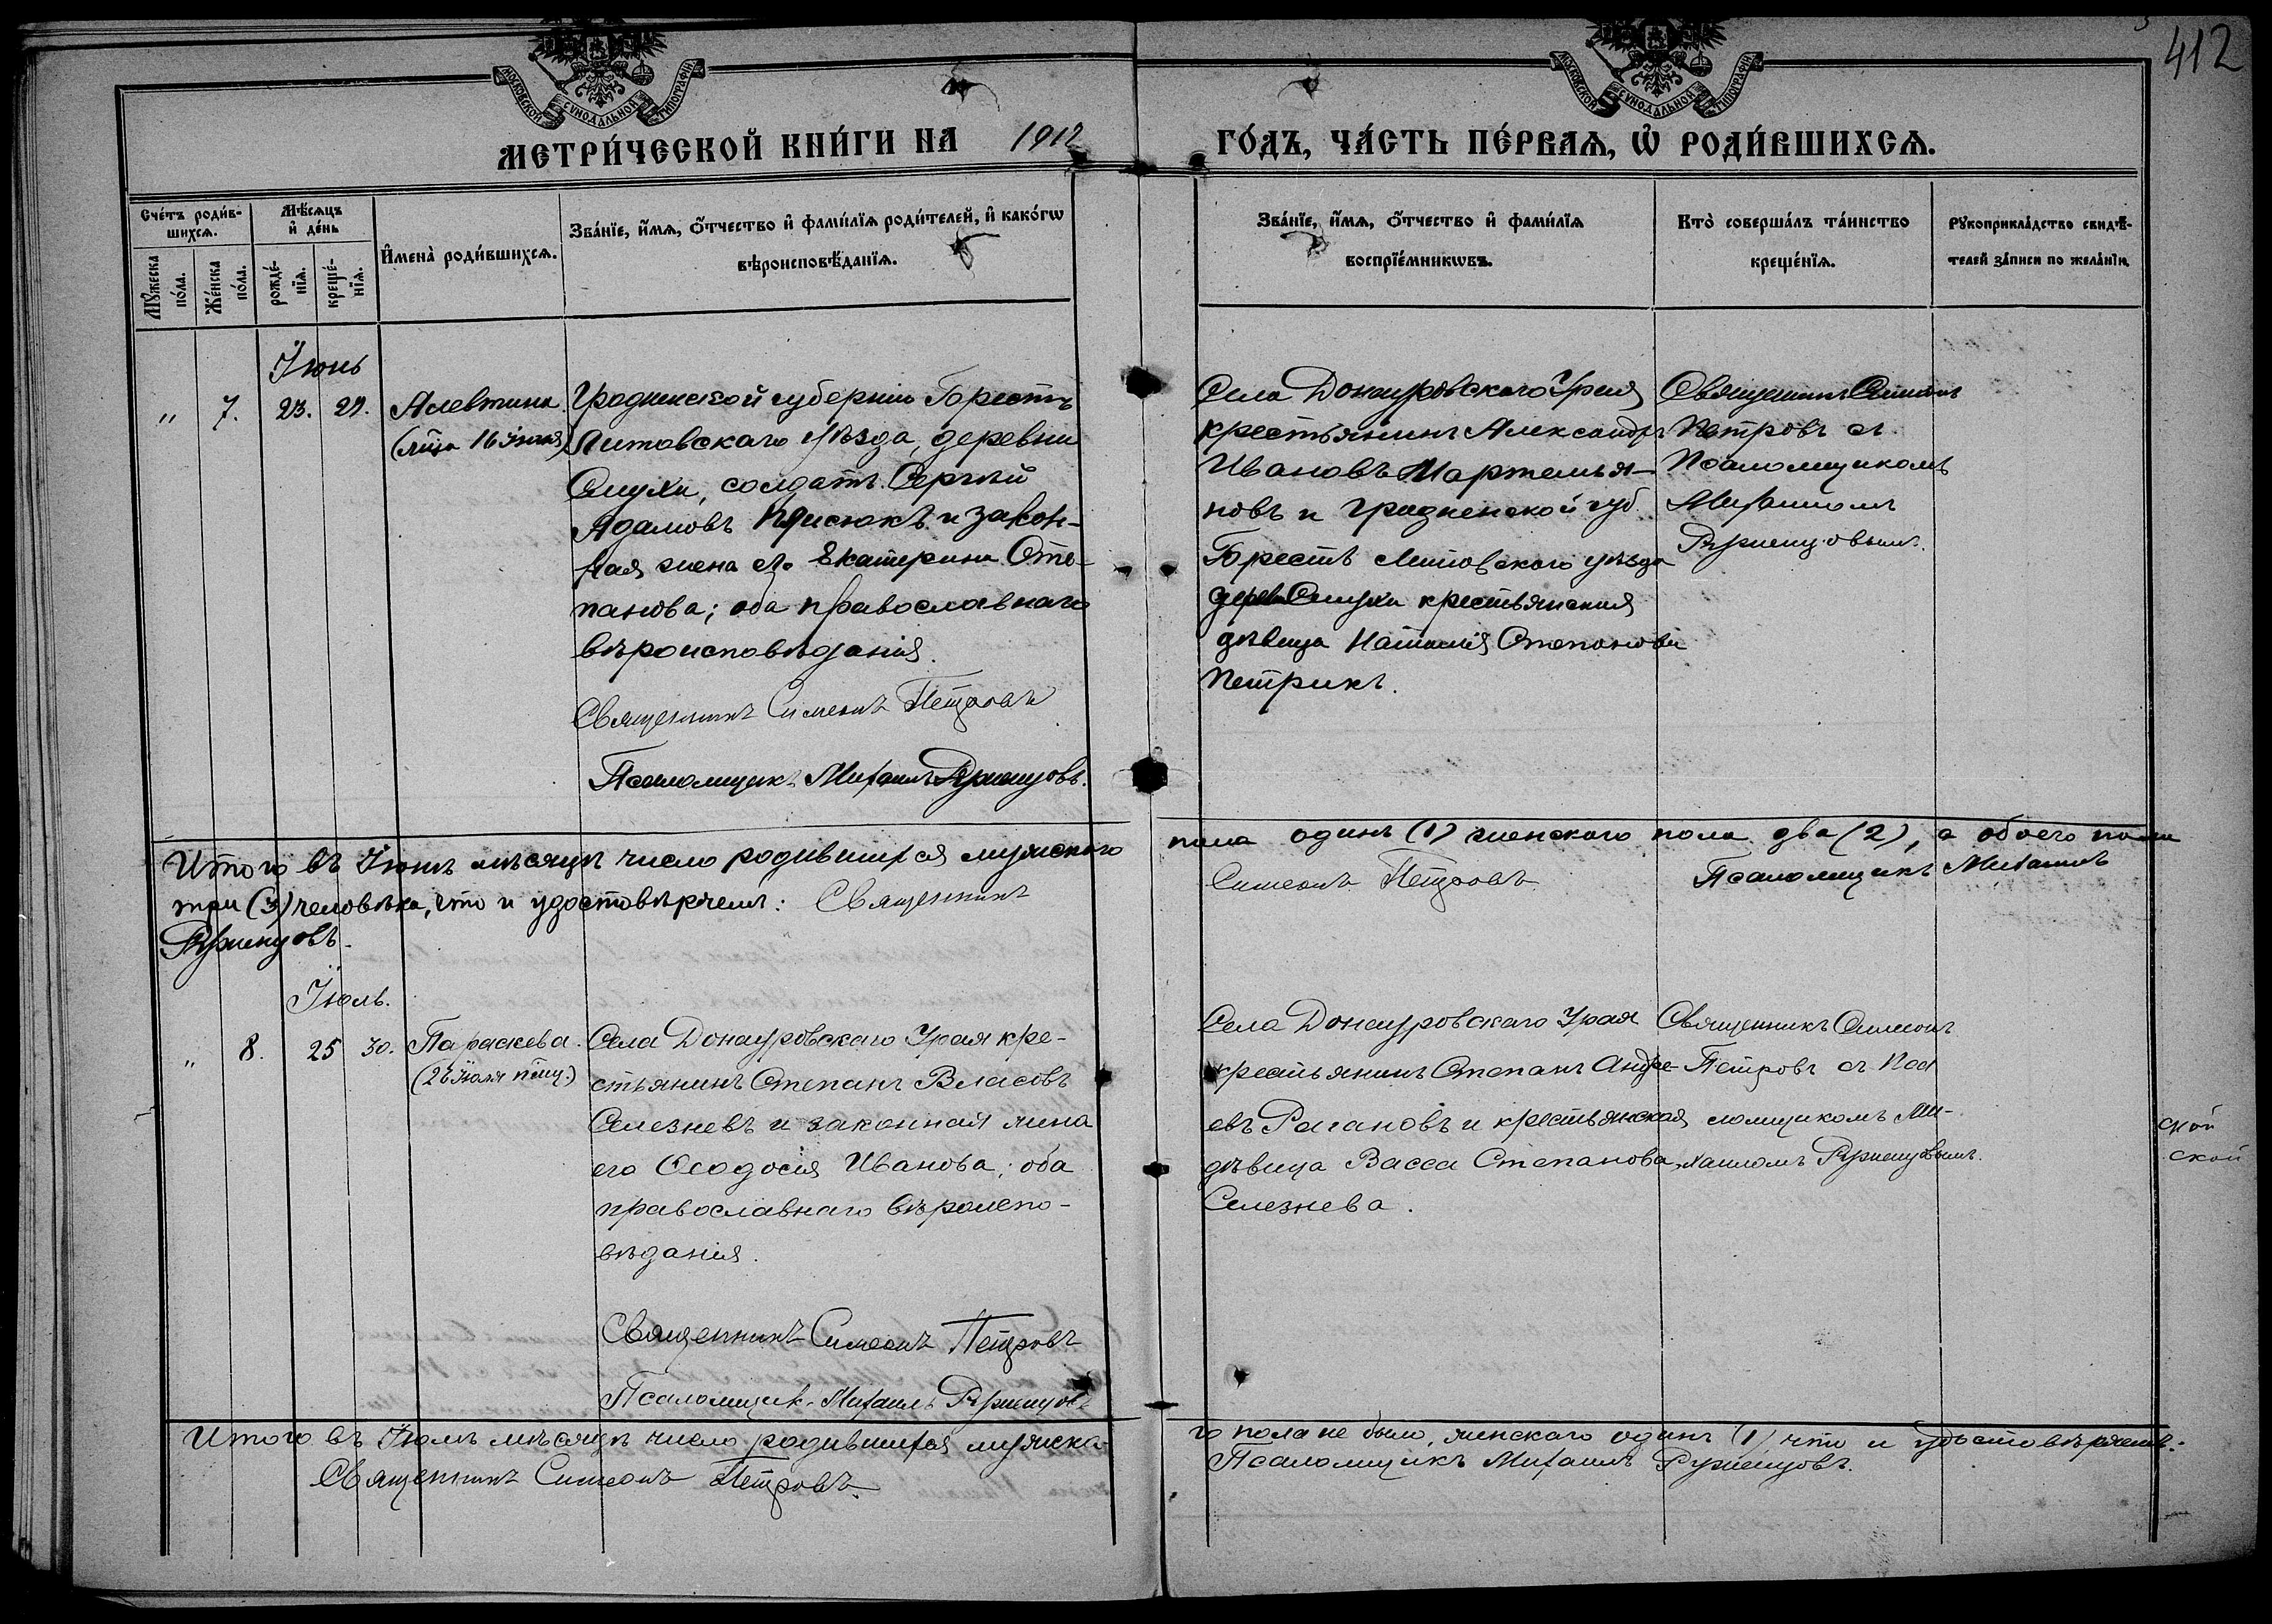 412
МОСКОВСКОЙ СѴНОДАЛЬНОЙ ТИПОГРАФІИ
МОСКОВСКОЙ СѴНОДАЛЬНОЙ ТИПОГРАФІИ
МЕТРИ́ЧЕСКОЙ КНИ́ГИ НА 1912
ГО́ДЪ, ЧА́СТЬ ПЕ́РВАѦ, Ѡ РОДИ́ВШИХСѦ.
Сче́тъ роди́в-
шихсѧ.
Мѣ́сѧцъ
и҆ де́нь
Мꙋ́жеска
по́ла.
Же́нска
по́ла.
рожде́-
нїѧ.
креще́-
нїѧ.
И҆мена̀ роди́вшихсѧ.
Зва́нїе, и҆́мѧ, ѻ҆́тчество и҆ фами́лїѧ роди́телей, и҆ како́гѡ
вѣроисповѣ́данїѧ.
Зва́нїе, и҆́мѧ, ѻ҆́тчество и҆ фами́лїѧ
воспрїе́мникѡвъ.
Кто̀ соверша́лъ та́инство
креще́нїѧ.
Рꙋкоприкла́дство свидѣ́-
телей за́писи по жела́нїю.
Іюнь
" 7. 23. 29.
Алевтина.
(16 Іюля)
Гродненской губерніи Брестъ
Литовскаго уѣзда, деревни
солдатъ Сергѣй
Адамовъ и закон-
ная жена его Екатерина Сте-
панова; оба православнаго
вѣроисповѣданія.
Священникъ Симеонъ Петровъ
Псаломщикъ Михаилъ Румянцовъ.
Села Донауровскаго Урая
крестьянинъ Александръ
Ивановъ Мартемья-
новъ и Гродненской губ.
Брестъ Литовскаго уѣзда
крестьянская
дѣвица Наталія Степанова
Петрикъ.
Священникъ Симеонъ
Петровъ съ
Псаломщикомъ
Михаиломъ
Румянцовымъ.
Итого въ Іюнѣ мѣсяцѣ число родившихся мужского
пола одинъ (1) женскаго пола два (2), а обоего пола
три (3) человѣка, что и удостовѣряемъ: Священникъ
Симеонъ Петровъ. Псаломщикъ Михаилъ
Румянцовъ.
Іюль.
" 8. 25 30.
Параскева.
(26 Іюля)
Села Донауровскаго Урая кре-
стьянинъ Степанъ Власовъ
Селезневъ и законная жена
его Ѳеодосія Иванова; оба
православнаго вѣроиспо-
вѣданія.
Священникъ Симеонъ Петровъ
Псаломщик. Михаилъ Румянцовъ
Села Донауровскаго Урая
крестьянинъ Степанъ Андре-
евъ и крестьянская
дѣвица Васса Степанова
Селезнева.
Священникъ Симеонъ
Петровъ съ Пса
ломщикомъ Ми-
хаиломъ Румянцовымъ.
ской
ской
Итого въ Іюлѣ мѣсяцѣ число родившихся мужска-
го пола не было, женскаго одинъ (1), что и удостовѣряемъ:
Священникъ Симеонъ Петровъ.
Псаломщикъ Михаилъ Румянцовъ.